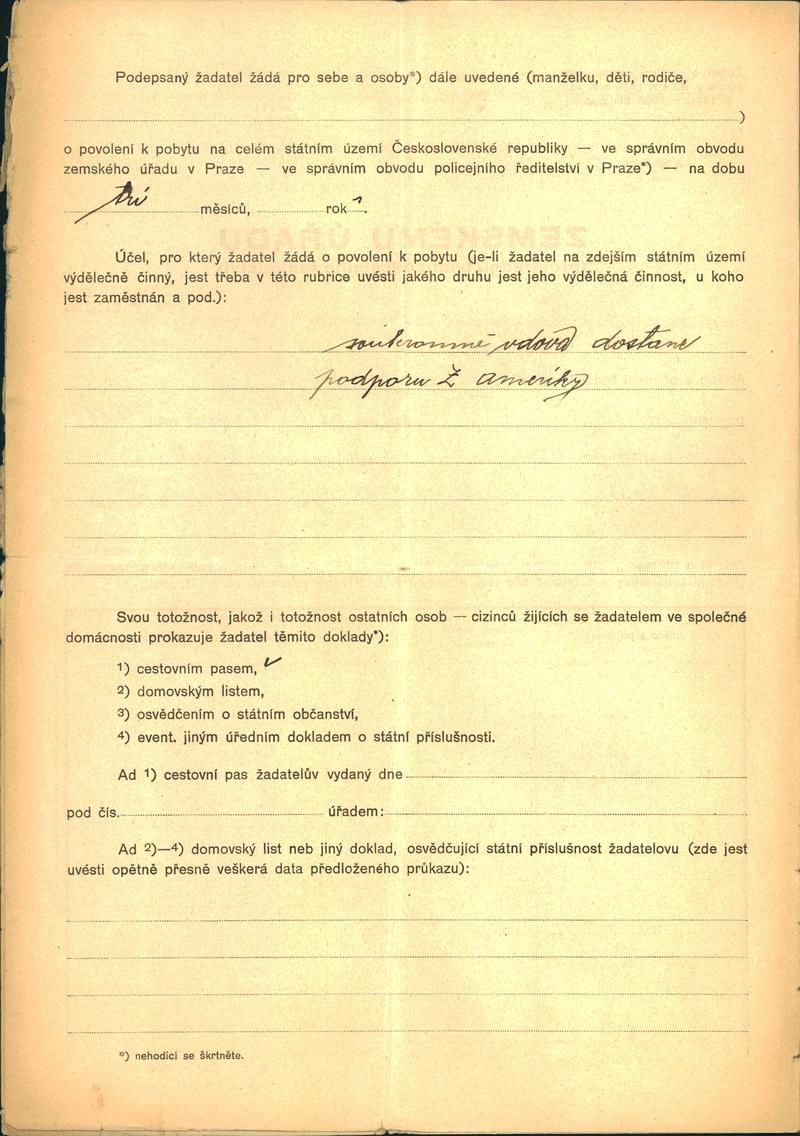 Podepsaný žadatel žádá pro sebe a osoby*) dále uvedené (manželku, děti, rodiče,
)
o povolení k pobytu na celém státním území Československé republiky — ve správním obvodu
zemského úřadu v Praze — ve správním obvodu policejního ředitelství v Praze*) — na dobu
tří měsíců, rok
Účel, pro který žadatel žádá o povolení k pobytu (je-li žadatel na zdejším státním území
výdělečně činný, jest třeba v této rubrice uvésti jakého druhu jest jeho výdělečná činnost, u koho
jest zaměstnán a pod.):
soukromně vdova dostane
podporu z ameriky
Svou totožnost, jakož i totožnost ostatních osob — cizinců žijících se žadatelem ve společné
domácnosti prokazuje žadatel těmito doklady*):
1) cestovním pasem,
2) domovským listem,
3) osvědčením o státním občanství,
4) event. jiným úředním dokladem o státní příslušnosti.
Ad 1) cestovní pas žadatelův vydaný dne
pod čís. úřadem:
Ad 2)—4) domovský list neb jiný doklad, osvědčující státní příslušnost žadatelovu (zde jest
uvésti opětně přesně veškerá data předloženého průkazu):
*) nehodící se škrtněte.